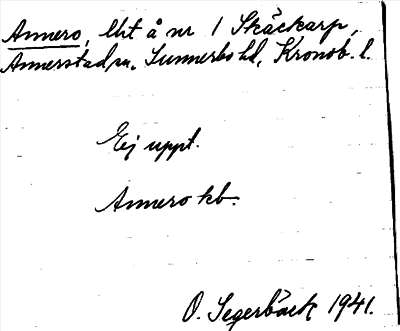 Annero, lht å nr 1 Skäckarp,
Annerstad sn, Sunnerbo hd, Kronob. l.
Ej uppt.
Annero kb.
O. Segerbäck 1941.